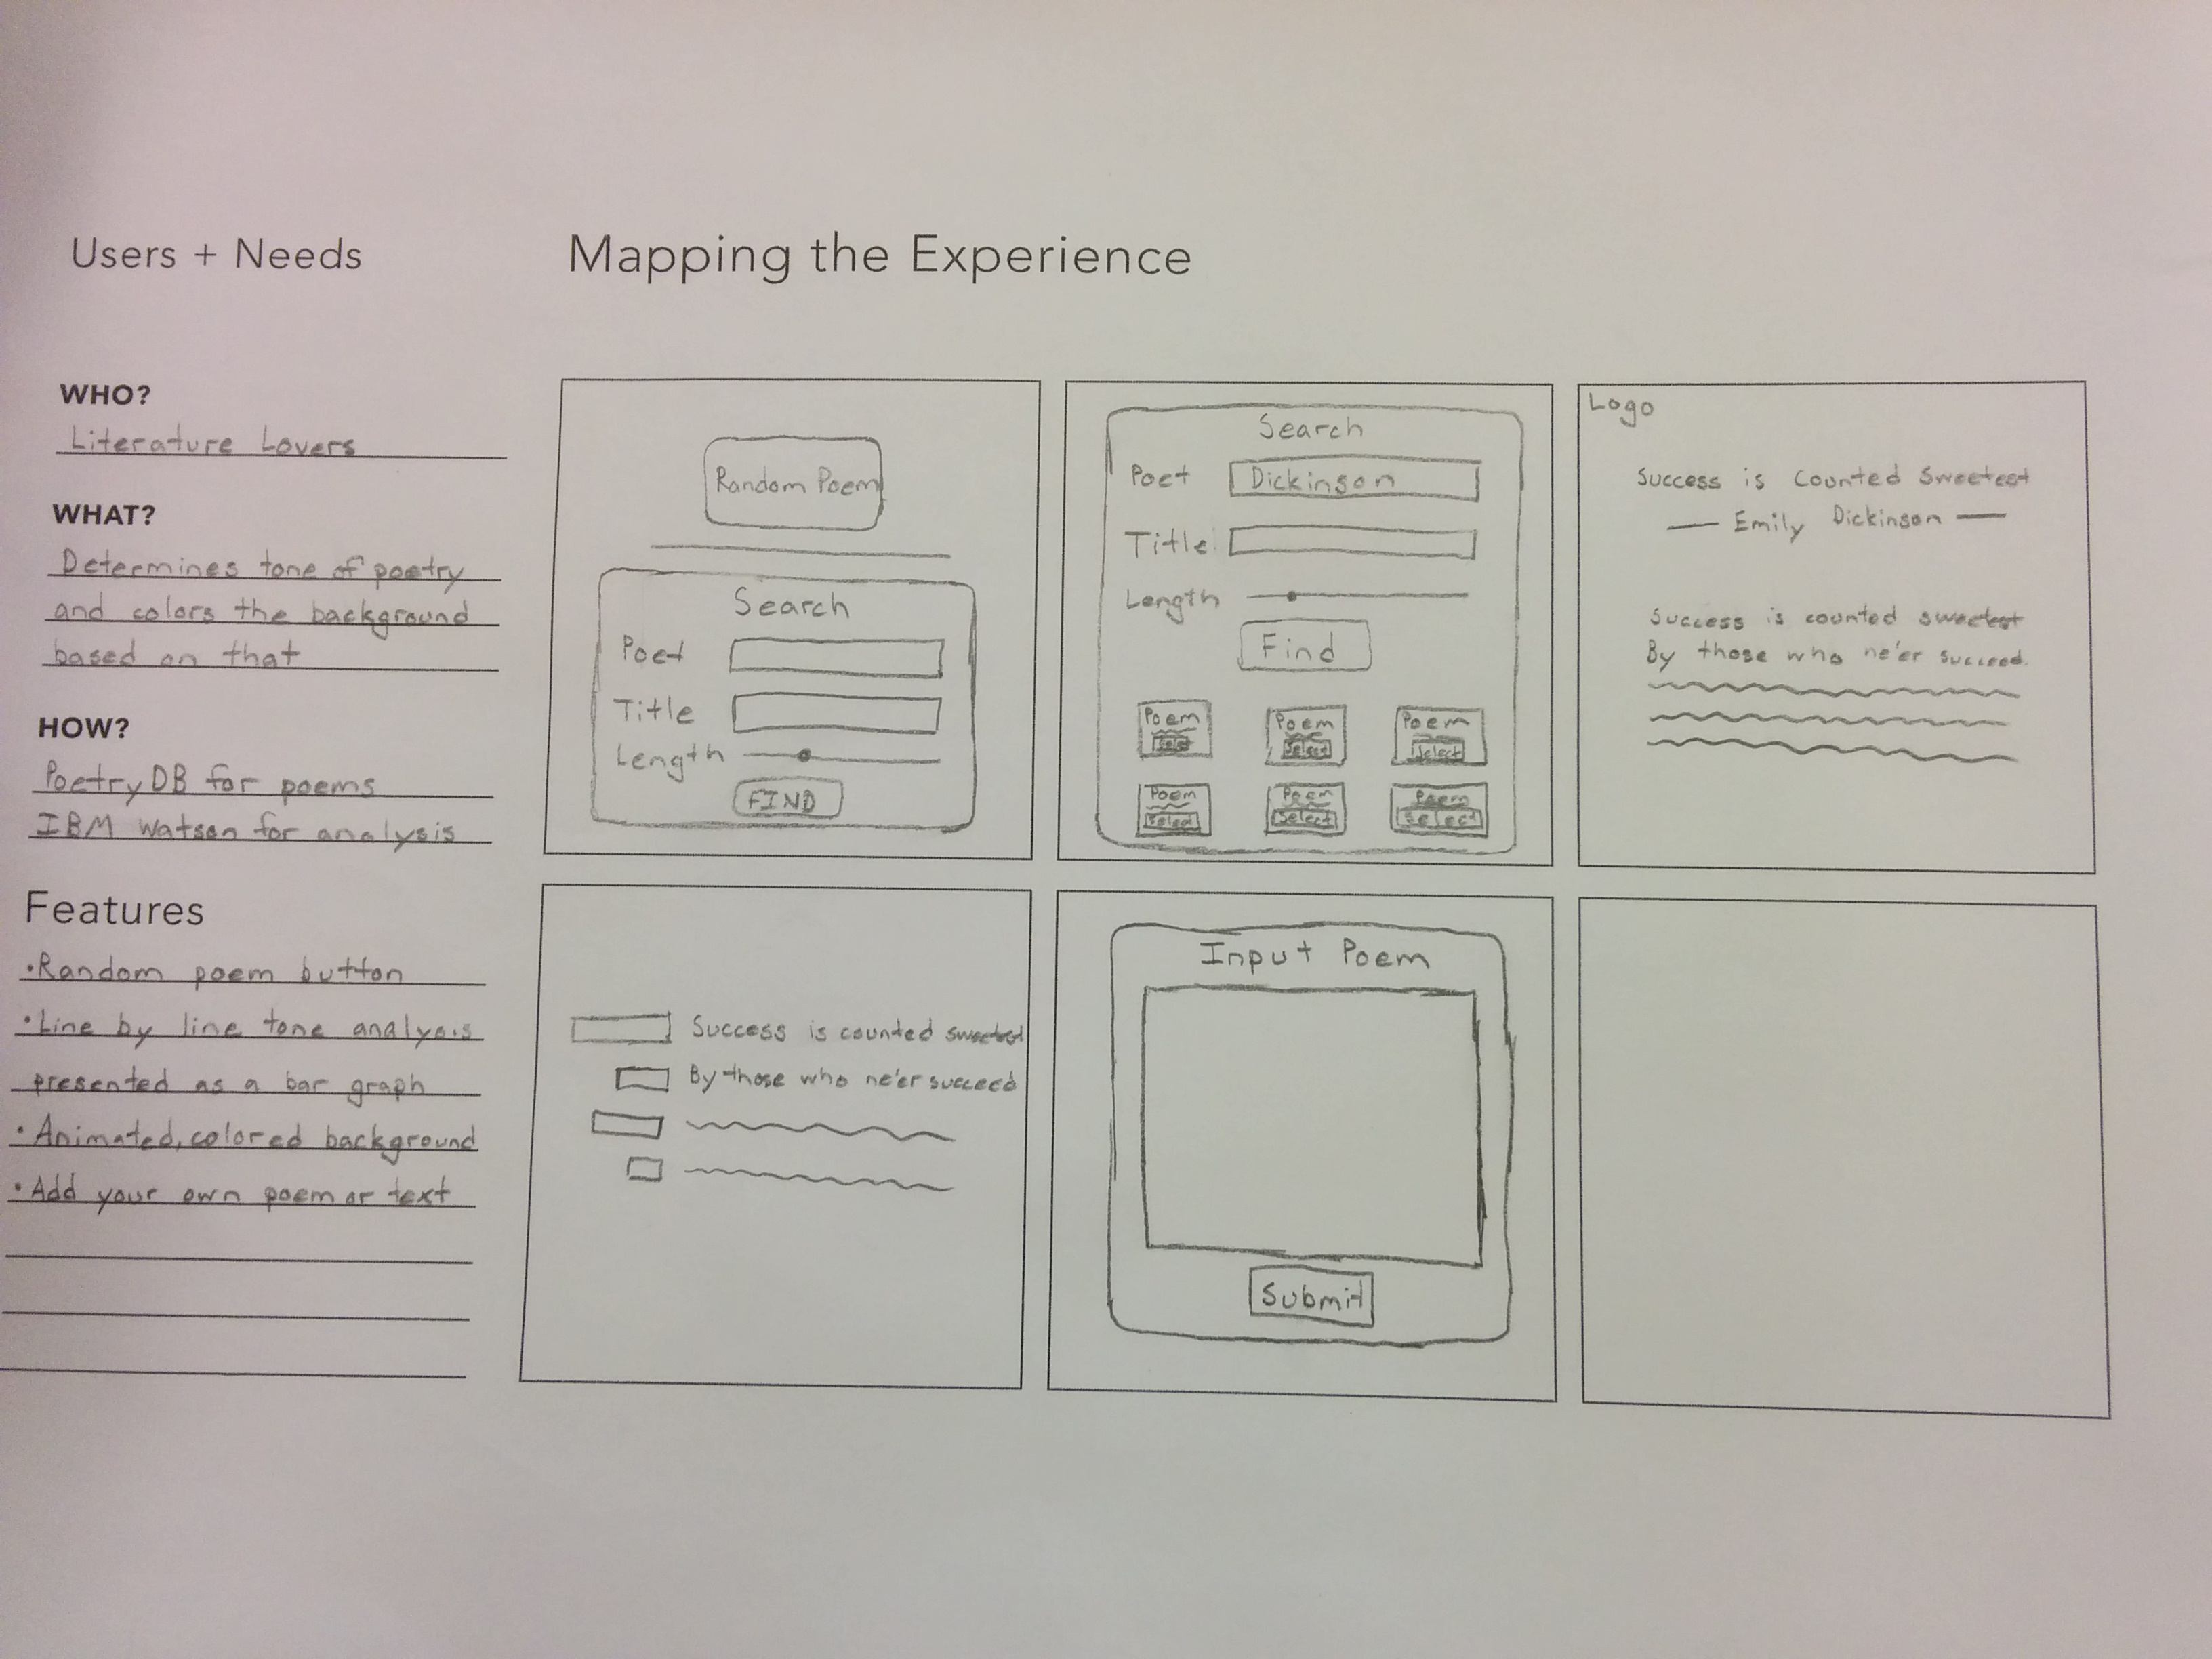 Users + Needs
WHO?
Literature Lovers
WHAT?
Determines tone of poetry
and colors the background
based on that
HOW?
PoetryDB for poems
IBM Watson for analysis
Features
•Random poem button
•Line by line tone analysis
presented as a bar graph
•Animated, colored background
•Add your own poem or text
Mapping the Experience
Random Poem
Search
Poet
Title
Length
FIND
Search
Poet Dickinson
Title
Length
Find
Poem Poem Poem
Select Select Select
Poem Poem Poem
Select Select Select
Logo
Success is Counted Sweetest
— Emily Dickinson —
Success is counted sweetest
By those who ne'er succeed.
Success is counted sweetest
By those who ne'er succeed
Input Poem
Submit